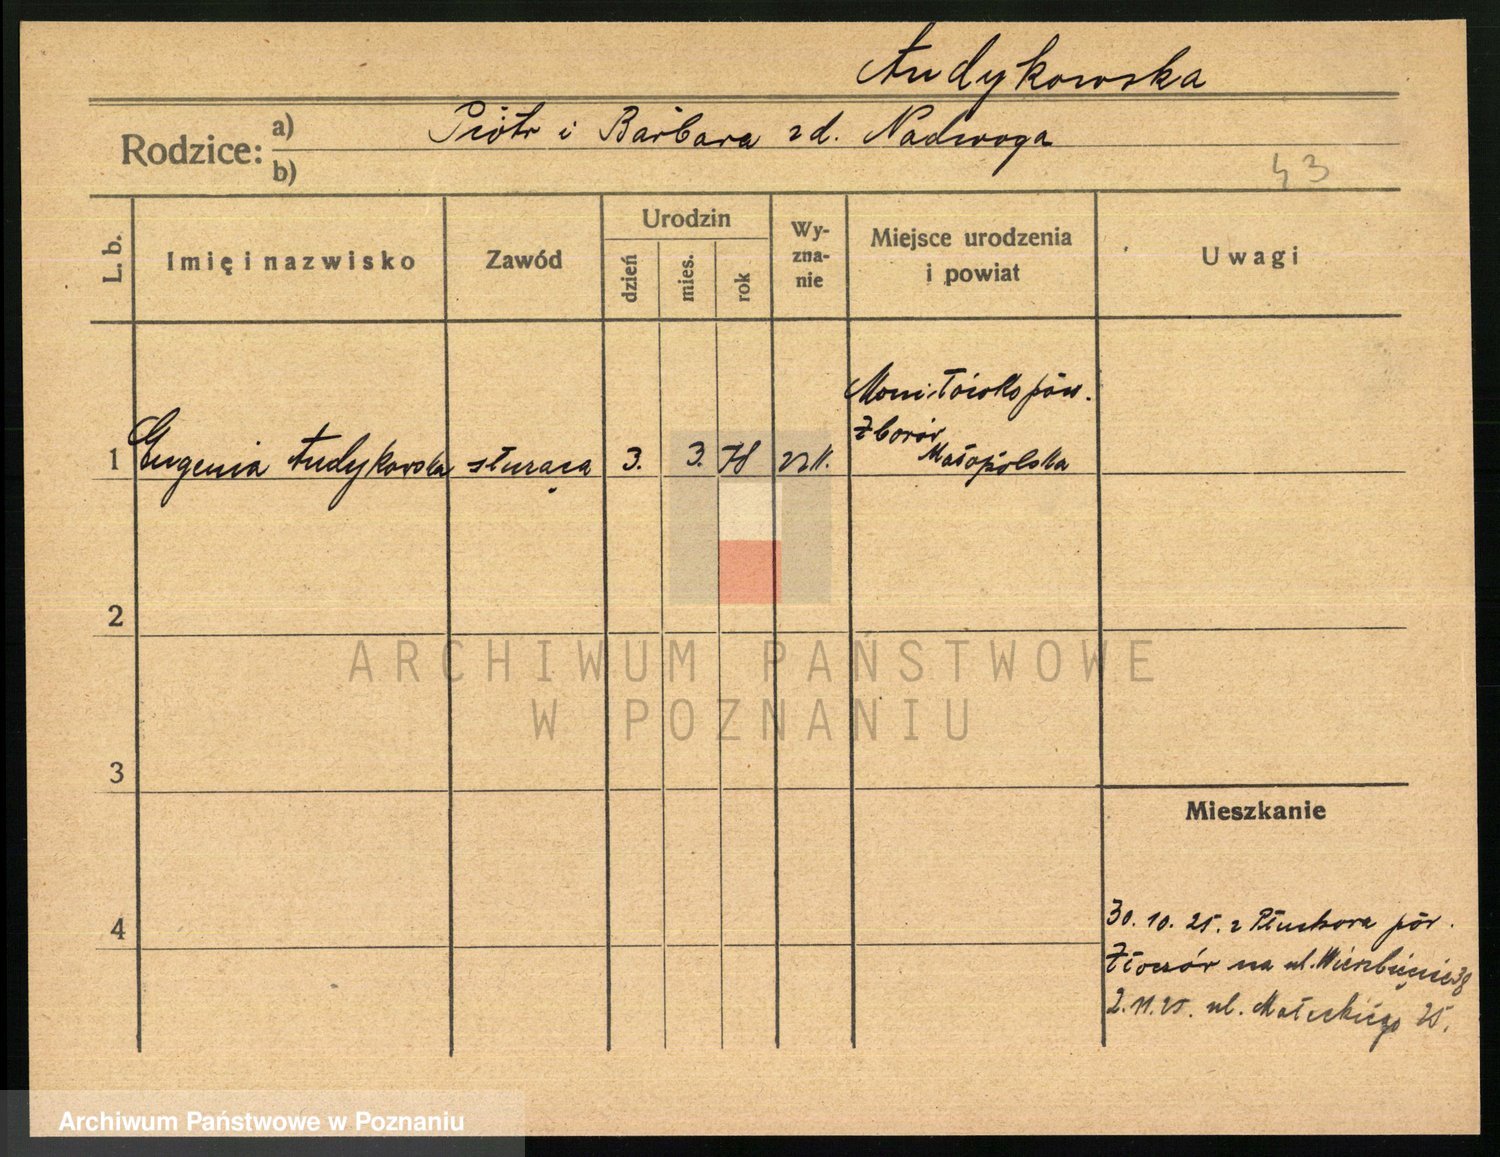 Andykowska
Rodzice: a) Piotr i Barbara zd. Nadwoga
b)
43
L. b.
Imię i nazwisko
Zawód
Urodzin
dzień
mies.
rok
Wy-
zna-
nie
Miejsce urodzenia
i powiat
Uwagi
1 Eugenia Andykowska służąca 3. 3. 78 rzk.
pow.
Zborów
Małopolska
2
3
4
Mieszkanie
30. 10. 25. z Płuchora pow.
Złoczów na ul. Wierzbięcie 38
2. 11. 25. ul. Małeckiego 25.
ARCHIWUM PAŃSTWOWE
W POZNANIU
Archiwum Państwowe w Poznaniu